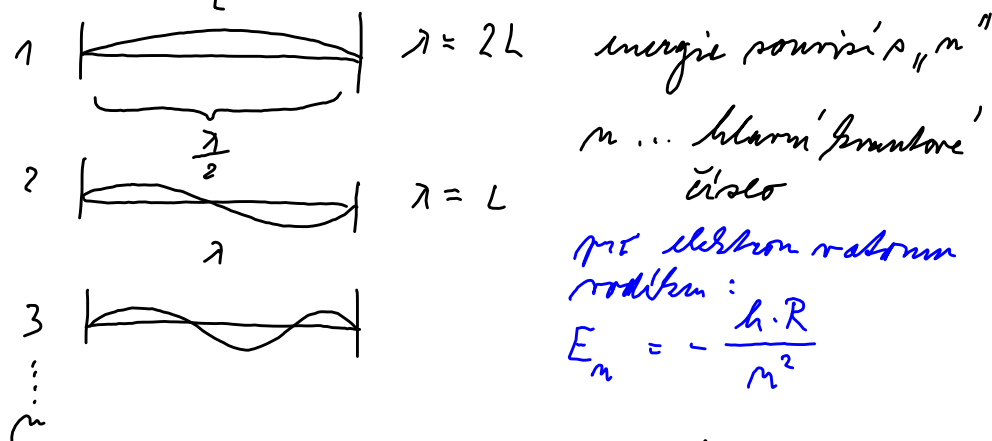 L
1 λ = 2L
λ/2
2 λ = L
λ
3
n
energie souvisí s „n”
n ... hlavní kvantové
číslo
pro elektron v atomu
vodíku :
E_n = - h·R / n²